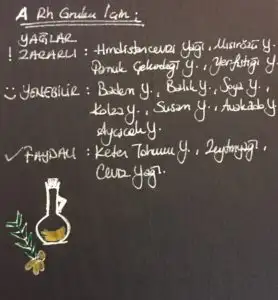 A Rh Grubu İçin :
YAĞLAR
! ZARARLI : Hindistancevizi Yağı, Mısırözü Y.
Pamuk Çekirdeği Y., Yerfıstığı Y.
YENEBİLİR : Badem Y., Balık Y., Soya Y.,
Kolza Y., Susam Y., Avakado Y.
Ayçiçek Y.
✓ FAYDALI : Keten Tohumu Y., Zeytinyağı,
Ceviz Yağı.